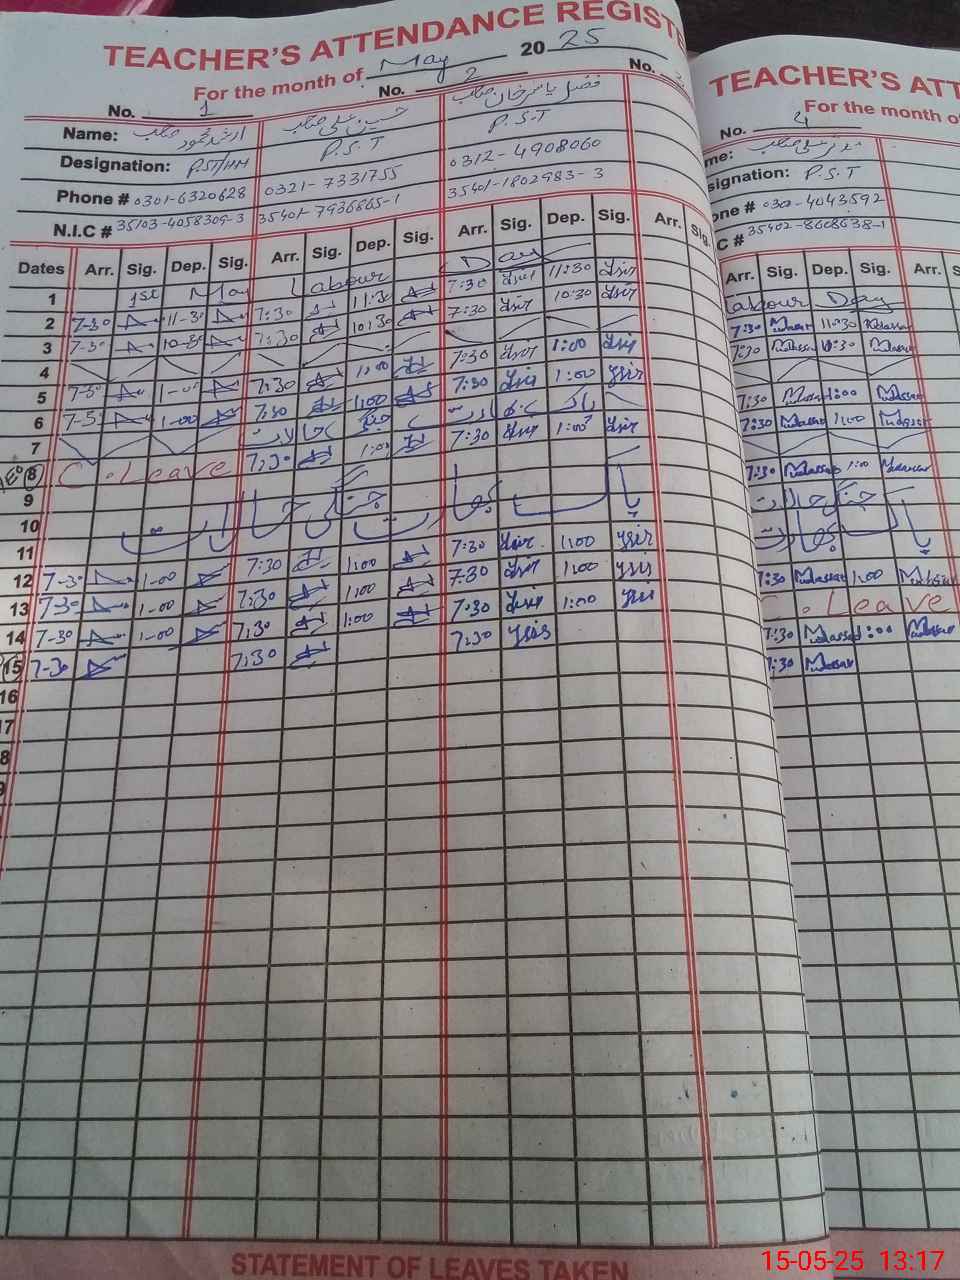 TEACHER'S ATTENDANCE REGISTE
For the month of May 2025
No. 1 No. 2 No. 3
Name: ارشد محمود صاحب حسین علی صاحب فضل یاسر خان صاحب
Designation: P.ST/HM P.S.T P.S.T
Phone # 0301-6320628 0321-7331755 0312-4908060
N.I.C # 35103-4058309-3 35401-7936665-1 35401-1802983-3
Dates Arr. Sig. Dep. Sig. Arr. Sig. Dep. Sig. Arr. Sig. Dep. Sig. Arr. Sig.
1 1st May Labour Day
2 7-30 11-30 7:30 11:30 7:30 11:30
3 7-30 10-30 7:30 10:30 7:30 10:30
4
5 7-30 1-00 7:30 1:00 7:30 1:00
6 7-30 1-00 7:30 1:00 7:30 1:00
7 پاک بھارت جنگی حالات
8 C.Leave 7:30 1:00 7:30 1:00
9 پاک بھارت جنگی حالات
10
11
12 7-30 1-00 7:30 1:00 7:30 1:00
13 7-30 1-00 7:30 1:00 7:30 1:00
14 7-30 1-00 7:30 1:00 7:30 1:00
15 7-30 7:30 7:30
16
17
8
9
STATEMENT OF LEAVES TAKEN
TEACHER'S ATT
For the month o
No. 4
me: مدثر علی صاحب
signation: P.S.T
one # 0302-4043592
C # 35402-8608638-1
Arr. Sig. Dep. Sig. Arr. S
Labour Day
7:30 Mudassar 11:30 Mudassar
7:30 Mudassar 10:30 Mudassar
7:30 Mudassar 1:00 Mudassar
7:30 Mudassar 1:00 Mudassar
7:30 Mudassar 1:00 Mudassar
جنگی حالات
پاک بھارت
7:30 Mudassar 1:00 Mudassar
C.Leave
7:30 Mudassar 1:00 Mudassar
7:30 Mudassar
15-05-25 13:17